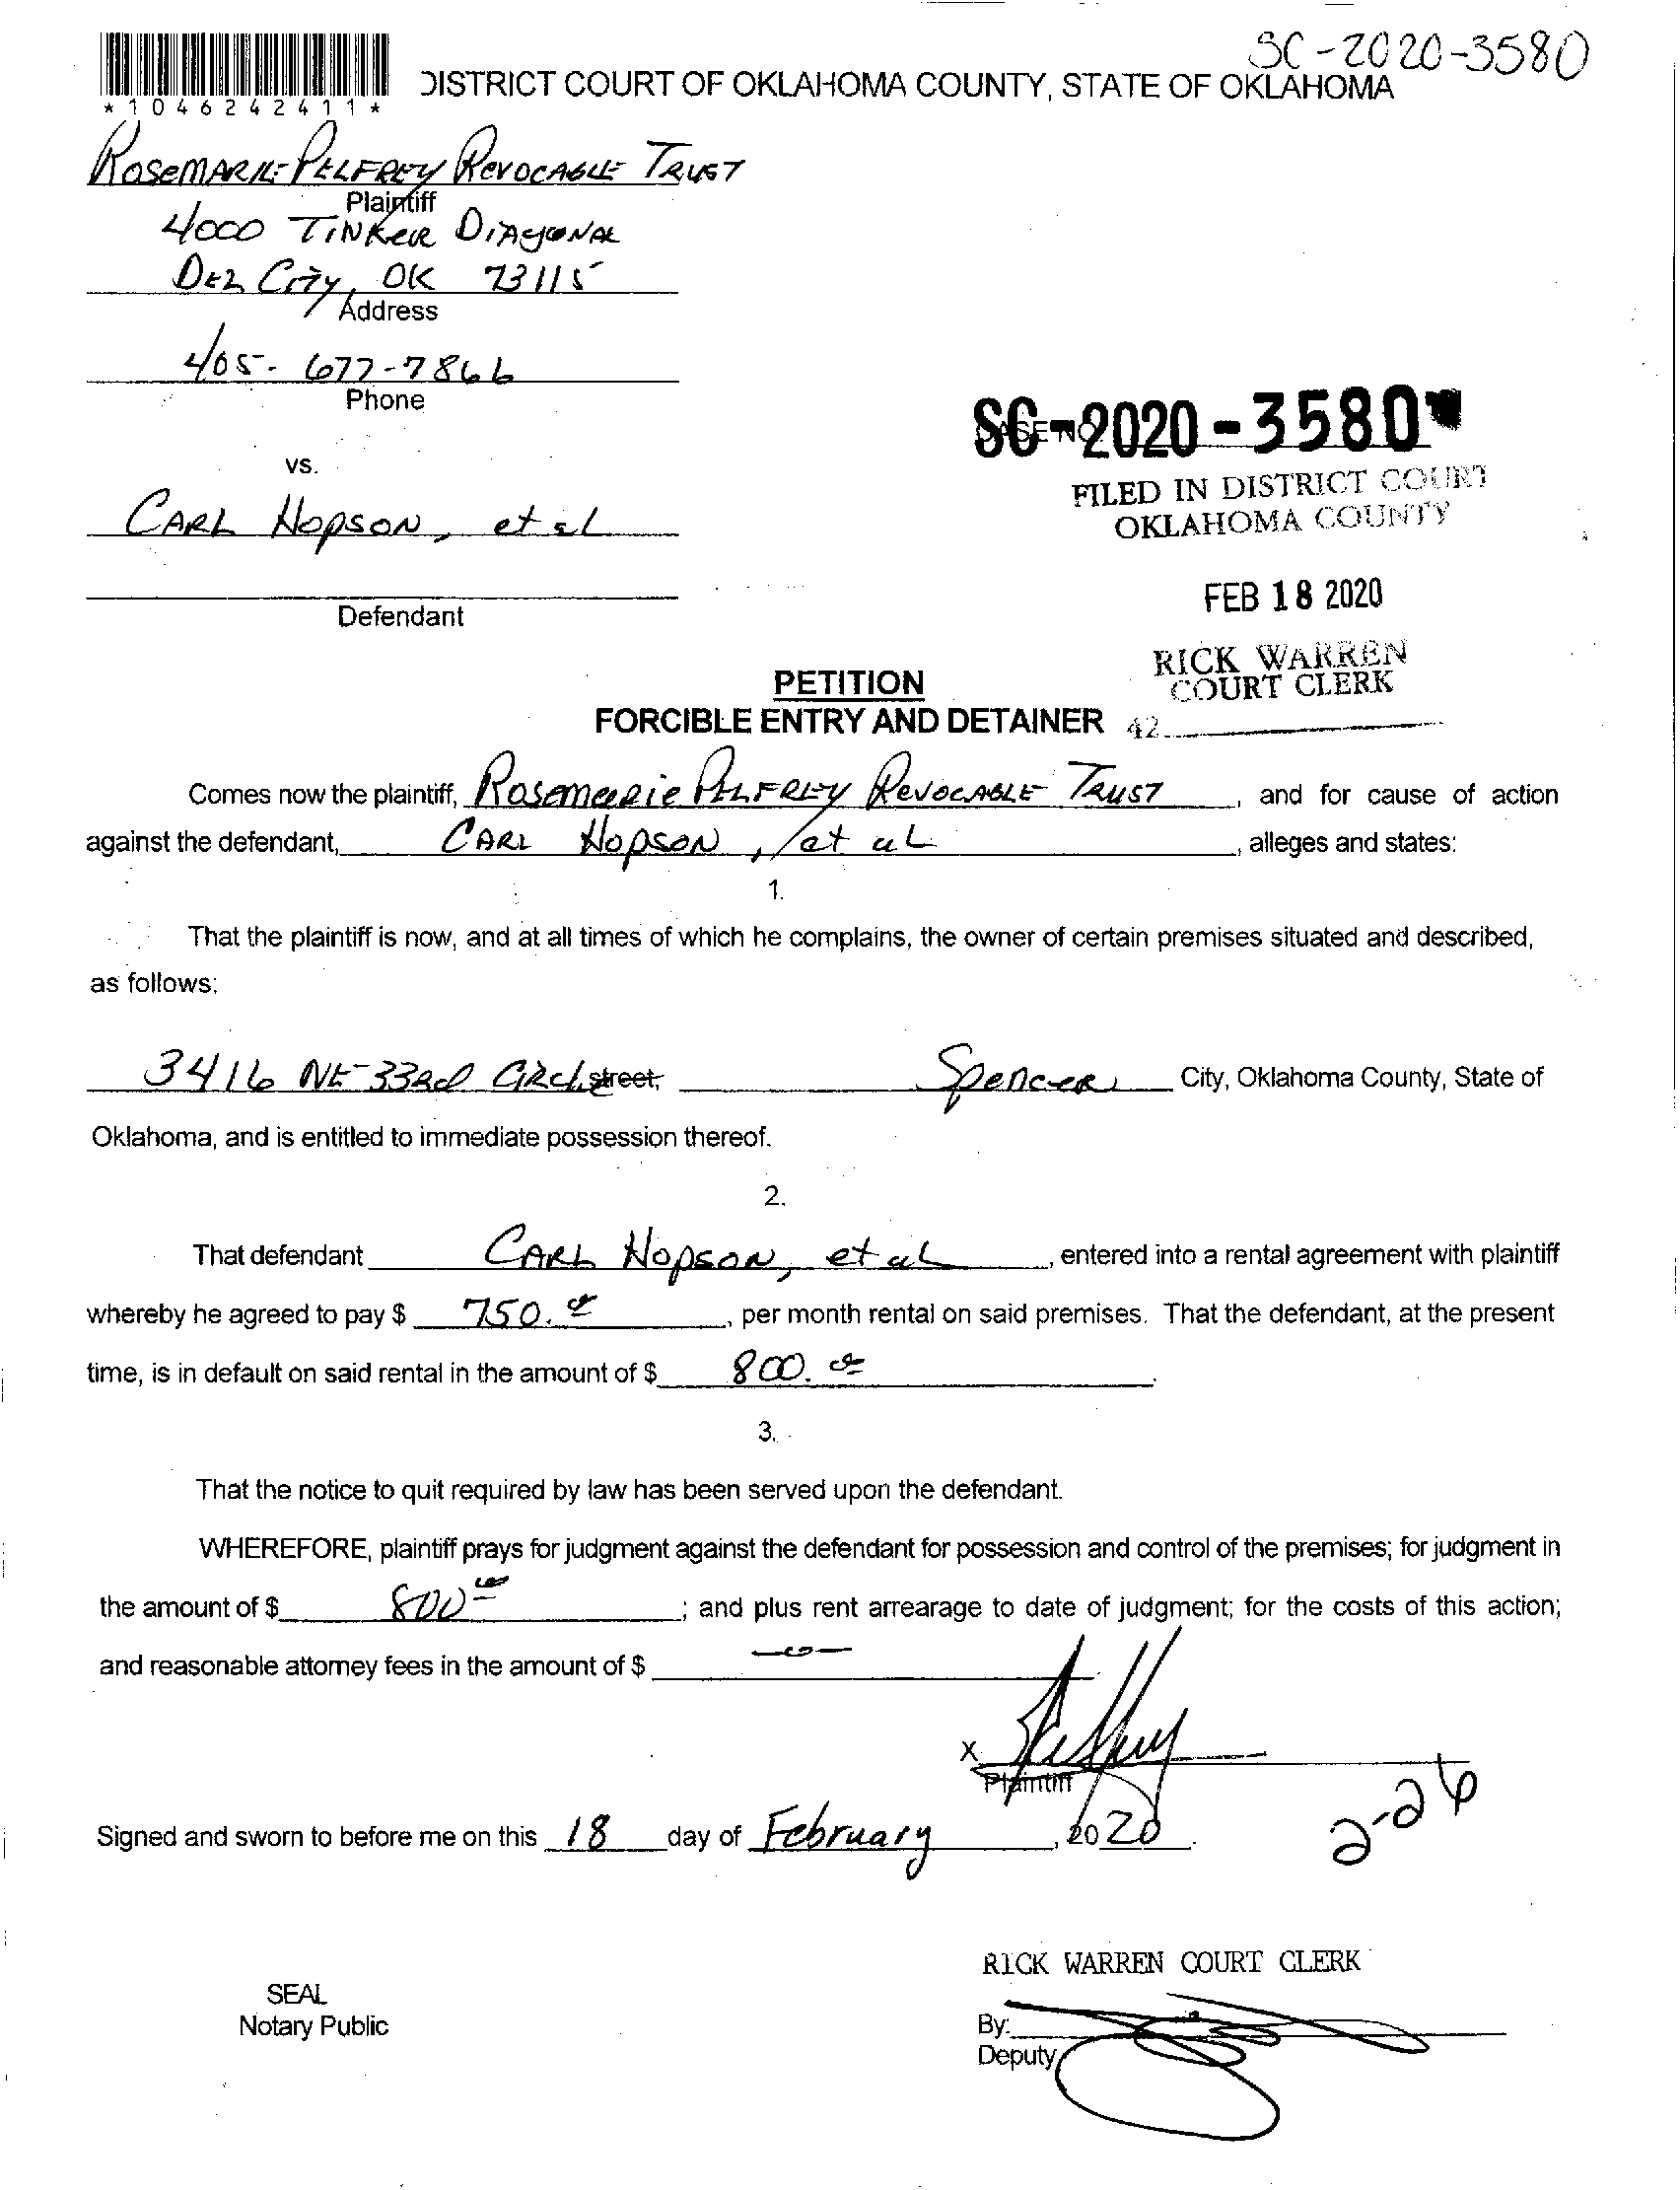 SC-2020-3580
DISTRICT COURT OF OKLAHOMA COUNTY, STATE OF OKLAHOMA
*1046242411*
ROSEMARIE PELFREY REVOCABLE TRUST
Plaintiff
4000 TINKER DIAGONAL
DEL CITY, OK 73115
Address
405-677-7866
Phone
SC-2020-3580
vs.
FILED IN DISTRICT COURT
OKLAHOMA COUNTY
CARL HOPSON, et al
FEB 18 2020
Defendant
RICK WARREN
COURT CLERK
PETITION
FORCIBLE ENTRY AND DETAINER 42
Comes now the plaintiff, ROSEMARIE PELFREY REVOCABLE TRUST, and for cause of action
against the defendant, CARL HOPSON, et al, alleges and states:
1.
That the plaintiff is now, and at all times of which he complains, the owner of certain premises situated and described,
as follows:
3416 NE 33Rd CIRCL street, Spencer City, Oklahoma County, State of
Oklahoma, and is entitled to immediate possession thereof.
2.
That defendant CARL HOPSON, et al, entered into a rental agreement with plaintiff
whereby he agreed to pay $ 750. , per month rental on said premises. That the defendant, at the present
time, is in default on said rental in the amount of $ 800. .
3.
That the notice to quit required by law has been served upon the defendant.
WHEREFORE, plaintiff prays for judgment against the defendant for possession and control of the premises; for judgment in
the amount of $ 800 ; and plus rent arrearage to date of judgment; for the costs of this action;
and reasonable attorney fees in the amount of $ -0-
X
Plaintiff
2-26
Signed and sworn to before me on this 18 day of February, 2020.
RICK WARREN COURT CLERK
SEAL
Notary Public
By:
Deputy